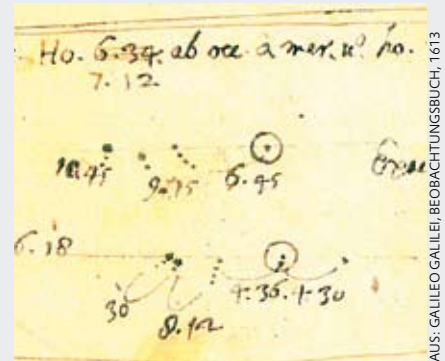 Ho. 6.34. ab occ. a mer. n° ho.
7.12
10.45 9.15 6.45
6.18
30 8.12 4.36. 4.30
AUS: GALILEO GALILEI, BEOBACHTUNGSBUCH, 1613